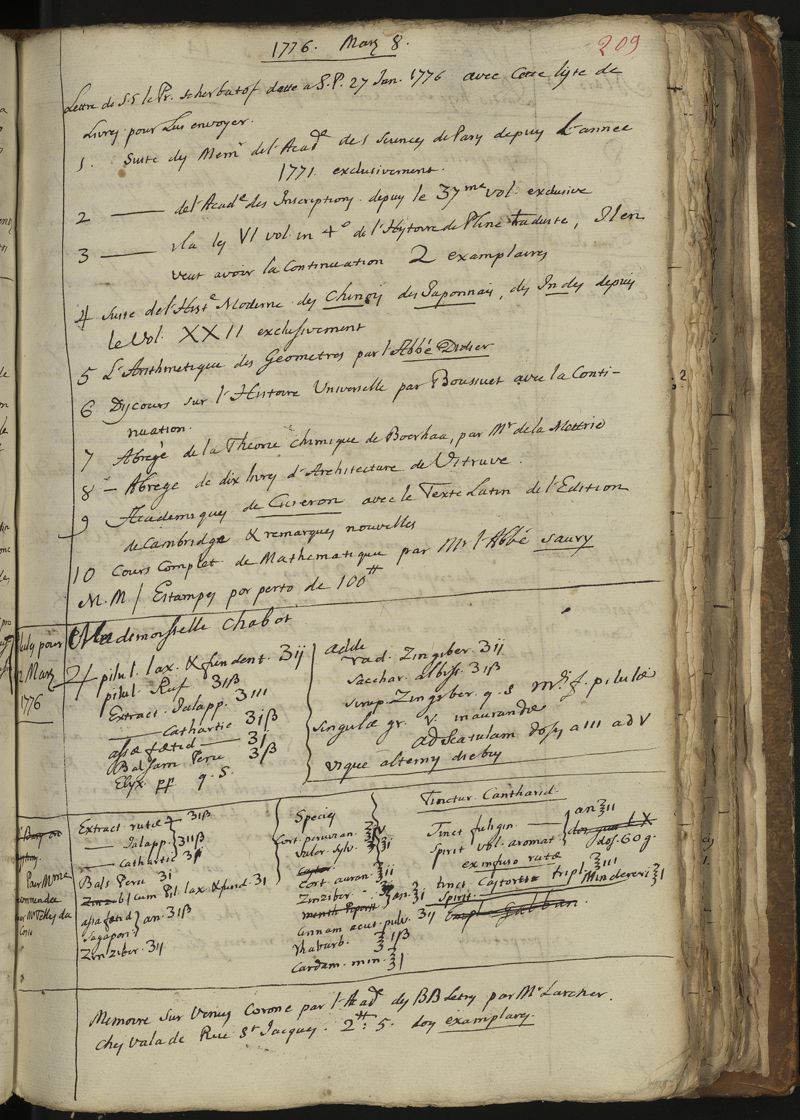 1776. Mars 8.
209
Lettre de S. S. le Pr. Scherbatof datte a S. P. 27 Jan. 1776 avec cette liste de
Livres pour Lui envoyer.
1. Suite des Mem. de l'Acade des Sciences de Paris depuis L'année
1771. exclusivement.
2 —— de l'Acade des Inscriptions. depuis le 37me vol. exclusive
3 —— il a les VI vol. in 4° de l'Histoire de Pline traduite, Il en
veut avoir la Continuation 2 examplaires
4 Suite de l'Histe Moderne des Chinois des Japonnais, des Indes depuis
le Vol. XXII exclusivement
5 L'Arithmetique des Geometres par l'Abbé Didier
6 Discours sur l'Histoire Universelle par Boussuet avec la Conti-
nuation.
7 Abregé de la Theorie chimique de Boerhaa, par Mr de la Mettrie
8 — Abregé de dix livres d'Architecture de Vitruve.
9 Academiques de Ciceron avec le Texte Latin de l'Edition
de Cambridge & remarques nouvelles
10 Cours Complet de Mathematique par Mr l'Abbé Saury
M. M / Estampes por perto de 100tt
Mademoiselle Chabot
pour
2 Mars
1776
♃ pilul. lax. & fundent. ʒij
pilul. Ruf ʒiß
Extract. Jalapp. ʒiii
—— Cathartic ʒiß
assæ fætid —— ʒi
Balsam Peru ʒß
Elix. pp q. s.
adde
rad. Zingiber. ʒij
Sacchar. albiss. ʒiß
Sirup. Zingiber. q. s Mdi f. pilulæ
Singulæ gr. V. inaurandæ
ad Scatulam dosis a III ad V
vique alternis diebus
Pour Mme
commendée
par Mr
Extract rutæ ʒiß
—— Jalapp. ʒiiß
—— Cathartic ʒß
Bals Peru ʒi
cum Pil. lax. & fund. ʒi
assa fætid
Sagapeni } an. ʒiß
Zinziber. ʒij
Species
Cort. peruvian.
Valer. sylv.
Cort. auran.
Zinziber.
Cinnam. acut. pulv. ʒij
Rhabarb. ʒiß
Cardam. min. ʒi
Tinctur. Cantharid.
Tinct. fuligin —
Spirit. vol. aromat
an ʒii
dos. 60 g.
ex infuso rutæ
tinct. Castorei tripl. ʒiii
Spirit. Mindereri ʒi
Empl. Galban.
Memoire sur Venus Corone par l'Acad des BB Letres par Mr Larcher.
Ches Valade Rue St Jacques. 2tt: 5. dos examplares.